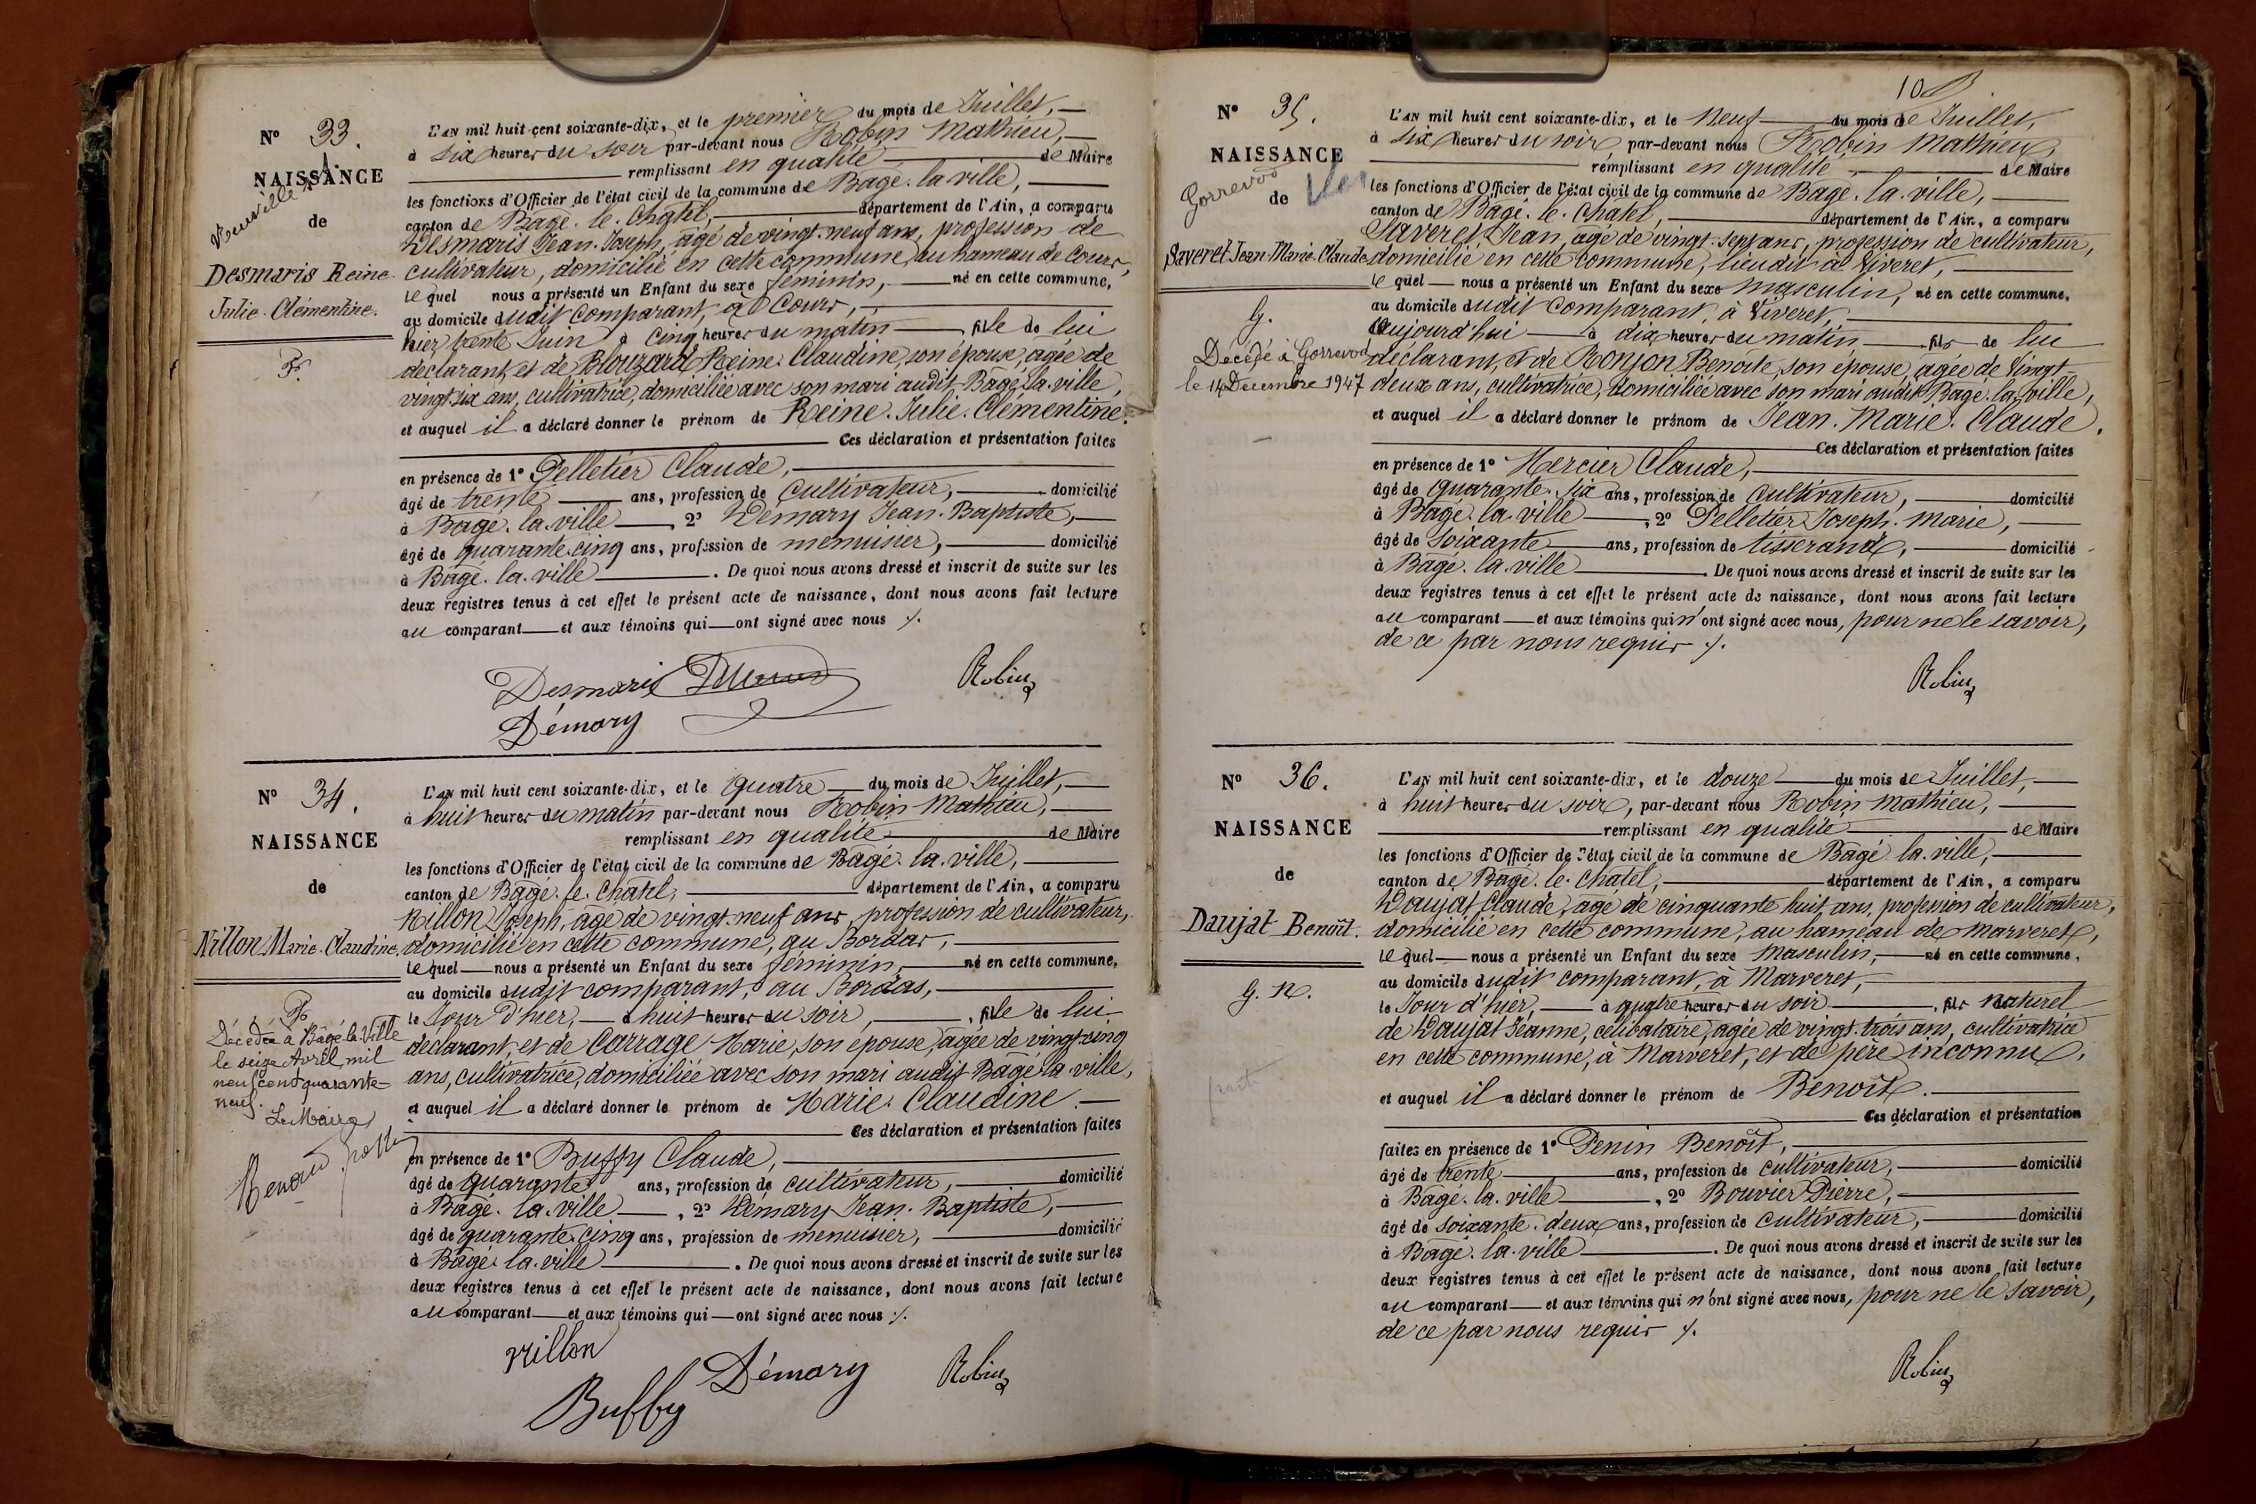 N° 33.
NAISSANCE
de
Desmaris Reine
Julie. Clémentine.
F.
L'AN mil huit cent soixante-dix, et le premier du mois de Juillet,
à six heures du soir par-devant nous Robin Mathieu,
remplissant en qualité de Maire
les fonctions d'Officier de l'état civil de la commune de Bagé. la ville,
canton de Bagé. le. Châtel, département de l'Ain, a comparu
Desmaris Jean. Joseph, âgé de vingt-neuf ans, profession de
cultivateur, domicilié en cette commune, au hameau de Cours,
le quel nous a présenté un Enfant du sexe féminin, né en cette commune,
au domicile dudit comparant, à Cours,
hier trente Juin à cinq heures du matin, fille de lui
déclarant, et de Blouzard Reine. Claudine, son épouse, âgée de
vingt-six ans, cultivatrice, domiciliée avec son mari audit Bâgé-la-ville,
et auquel il a déclaré donner le prénom de Reine. Julie. Clémentine.
Ces déclaration et présentation faites
en présence de 1° Pelletier Claude,
âgé de trente ans, profession de cultivateur, domicilié
à Bagé. la. ville, 2° Démary Jean. Baptiste,
âgé de quarante-cinq ans, profession de menuisier, domicilié
à Bagé. la. ville. De quoi nous avons dressé et inscrit de suite sur les
deux registres tenus à cet effet le présent acte de naissance, dont nous avons fait lecture
au comparant et aux témoins qui ont signé avec nous ./.
Desmaris
Robin
Démary
N° 34.
NAISSANCE
de
Nillon Marie. Claudine.
F.
Décédée à Bâgé-la-Ville
le seize Avril mil
neuf cent quarante-
neuf.
Le Maire
L'AN mil huit cent soixante-dix, et le quatre du mois de Juillet,
à huit heures du matin par-devant nous Robin Mathieu,
remplissant en qualité de Maire
les fonctions d'Officier de l'état civil de la commune de Bâgé. la. ville,
canton de Bagé. le. Châtel, département de l'Ain, a comparu
Nillon Joseph, âgé de vingt-neuf ans, profession de cultivateur,
domicilié en cette commune, au Bordas,
le quel nous a présenté un Enfant du sexe féminin, né en cette commune,
au domicile dudit comparant, au Bordas,
le Jour d'hier, à huit heures du soir, fille de lui
déclarant, et de Carrage Marie, son épouse, âgée de vingt-cinq
ans, cultivatrice, domiciliée avec son mari audit Bâgé la ville,
et auquel il a déclaré donner le prénom de Marie. Claudine.
Ces déclaration et présentation faites
en présence de 1° Buffy Claude,
âgé de quarante ans, profession de cultivateur, domicilié
à Bâgé. la. ville, 2° Démary Jean. Baptiste,
âgé de quarante-cinq ans, profession de menuisier, domicilié
à Bâgé. la. ville. De quoi nous avons dressé et inscrit de suite sur les
deux registres tenus à cet effet le présent acte de naissance, dont nous avons fait lecture
au comparant et aux témoins qui ont signé avec nous ./.
Nillon
Démary
Robin
Buffy
10
N° 35.
NAISSANCE
Gorrevod
de
Saveret Jean-Marie-Claude
G.
Décédé à Gorrevod
le 14 Décembre 1947
L'AN mil huit cent soixante-dix, et le Neuf du mois de Juillet,
à six heures du soir par-devant nous Robin Mathieu,
remplissant en qualité de Maire
les fonctions d'Officier de l'état civil de la commune de Bagé. la. ville,
canton de Bâgé. le. Châtel, département de l'Ain, a comparu
Saveret Jean, âgé de vingt-sept ans, profession de cultivateur,
domicilié en cette commune, lieudit à Viveret,
le quel nous a présenté un Enfant du sexe masculin, né en cette commune,
au domicile dudit comparant, à Viveret,
Aujourd'hui à dix heures du matin, fils de lui
déclarant, et de Ronjon Benoite, son épouse, âgée de vingt-
deux ans, cultivatrice, domiciliée avec son mari audit Bagé. la. ville,
et auquel il a déclaré donner le prénom de Jean. Marie. Claude.
Ces déclaration et présentation faites
en présence de 1° Mercier Claude,
âgé de quarante. six ans, profession de cultivateur, domicilié
à Bagé. la. ville, 2° Pelletier Joseph. Marie,
âgé de soixante ans, profession de tisserand, domicilié
à Bâgé. la. ville. De quoi nous avons dressé et inscrit de suite sur les
deux registres tenus à cet effet le présent acte de naissance, dont nous avons fait lecture
au comparant et aux témoins qui n'ont signé avec nous, pour ne le savoir,
de ce par nous requis ./.
Robin
N° 36.
NAISSANCE
de
Daujat Benoît.
G. N.
L'AN mil huit cent soixante-dix, et le douze du mois de Juillet,
à huit heures du soir, par-devant nous Robin Mathieu,
remplissant en qualité de Maire
les fonctions d'Officier de l'état civil de la commune de Bâgé la. ville,
canton de Bagé. le. Châtel, département de l'Ain, a comparu
Daujat Claude, âgé de cinquante huit ans, profession de cultivateur,
domicilié en cette commune, au hameau de Marveret,
le quel nous a présenté un Enfant du sexe Masculin, né en cette commune,
au domicile dudit comparant, à Marveret,
le Jour d'hier, à quatre heures du soir, fils naturel
de Daujat Jeanne, célibataire, âgée de vingt-trois ans, cultivatrice
en cette commune, à Marveret, et de père inconnu.
et auquel il a déclaré donner le prénom de Benoît.
Ces déclaration et présentation
faites en présence de 1° Penin Benoît,
âgé de trente ans, profession de cultivateur, domicilié
à Bagé. la. ville, 2° Bouvier Pierre,
âgé de soixante. deux ans, profession de cultivateur, domicilié
à Bâgé. la. ville. De quoi nous avons dressé et inscrit de suite sur les
deux registres tenus à cet effet le présent acte de naissance, dont nous avons fait lecture
au comparant et aux témoins qui n'ont signé avec nous, pour ne le savoir,
de ce par nous requis ./.
Robin